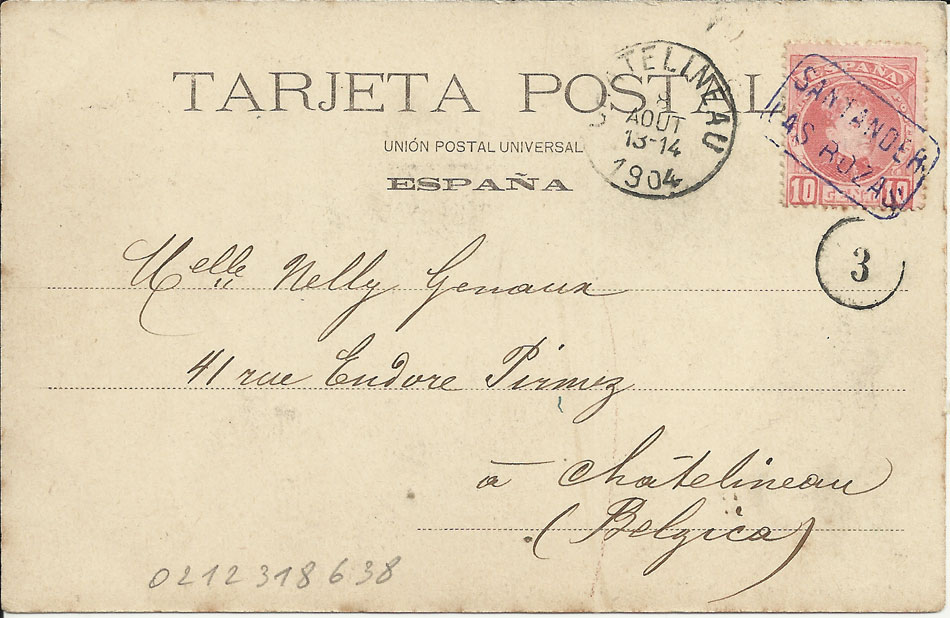 TARJETA POSTAL
UNIÓN POSTAL UNIVERSAL
ESPAÑA
TELINEAU
8
AOUT
13-14
1904
ESPAÑA
10 10
SANTANDER
LAS ROZAS
3
Melle Nelly Genaux
41 rue Eudore Pirmez
à Châtelineau
(Belgica)
0212318638